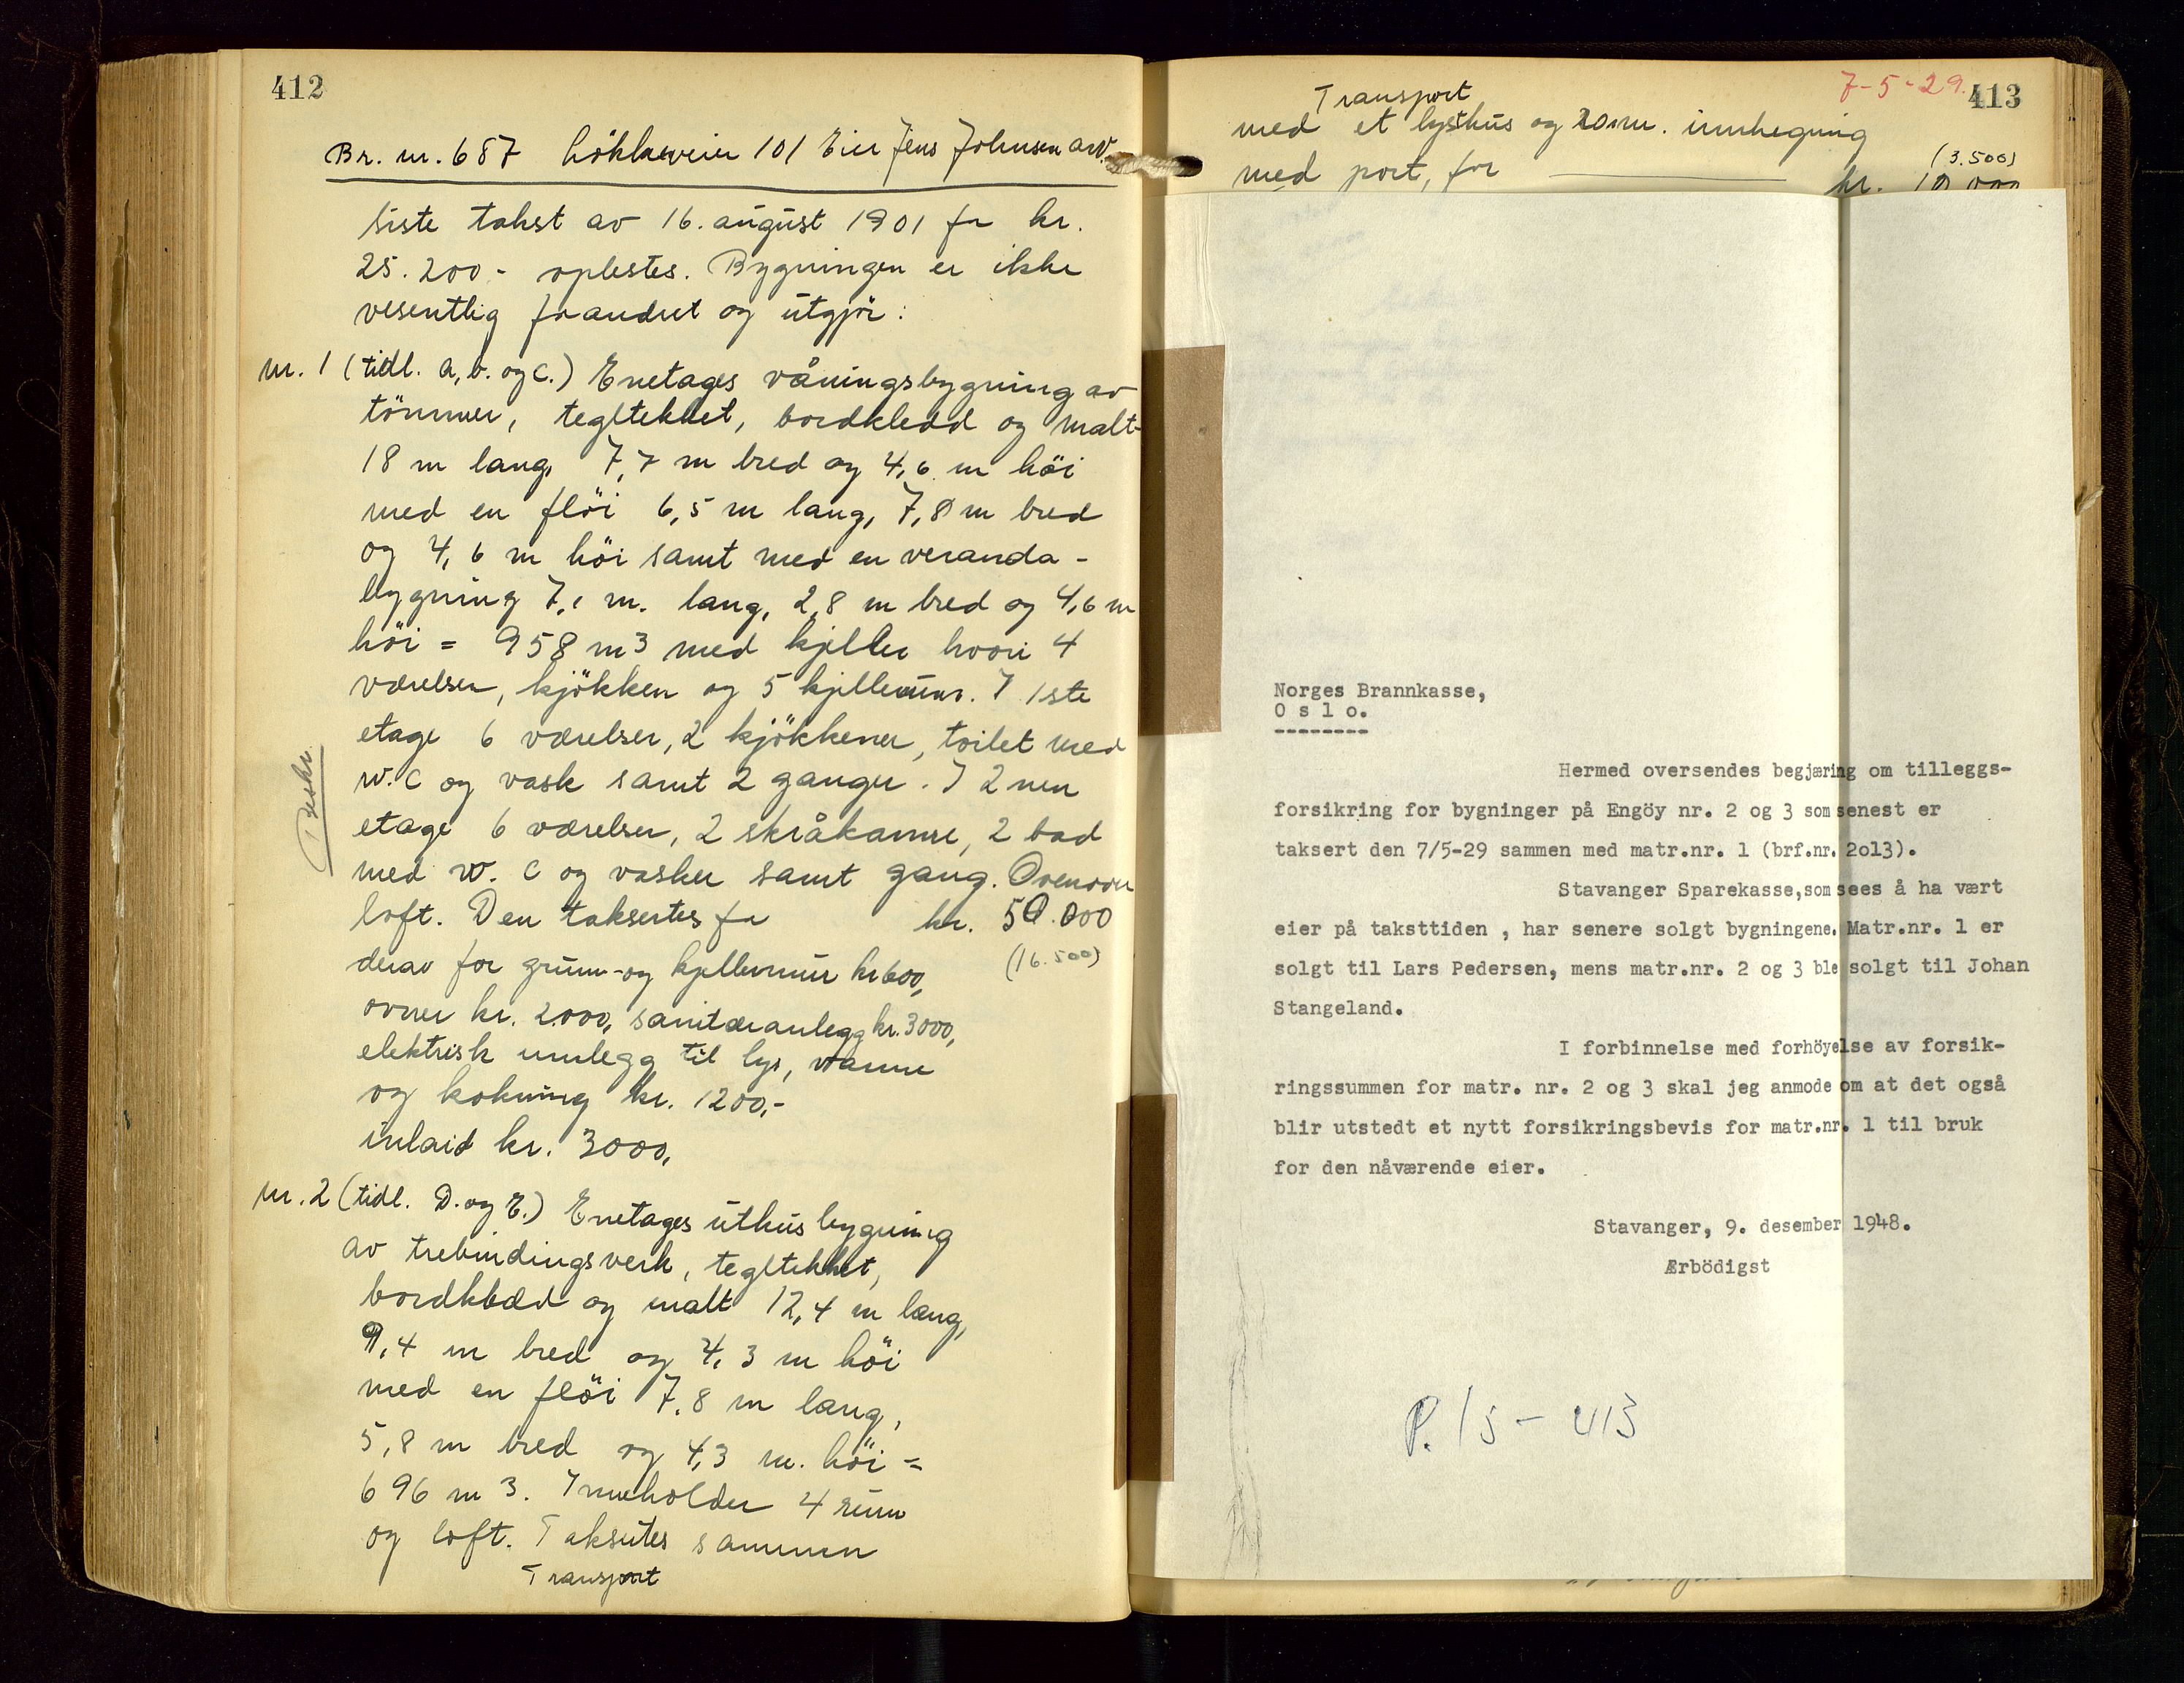 412
Br. nr. 687 Lökkeveien 101 Eier Jens Johnsen arv.
Siste takst av 16. august 1901 for kr.
25.200 - oplestes. Bygningen er ikke
vesentlig forandret og utgjör:
nr. 1 (tidl. a, b. og c.) Enetages våningsbygning av
tömmer, tegltekket, bordkledd og malt
18 m lang, 7,7 m bred og 4,6 m höi
med en flöi 6,5 m lang, 7,8 m bred
og 4,6 m höi samt med en veranda-
bygning 7,1 m. lang, 2,8 m bred og 4,6 m
höi = 958 m3 med kjeller hvori 4
værelser, kjökken og 5 kjellerrum. I 1ste
etage 6 værelser, 2 kjökkener, toilet med
w.c og vask samt 2 ganger. I 2nen
etage 6 værelser, 2 skråkamre, 2 bad
med w. c og vasker samt gang. Ovenover
loft. Den taksertes for kr. 50.000
(16.500)
derav for grunn- og kjellermur kr 600,
ovner kr. 2.000, sanitæranlegg kr. 3000,
elektrisk innlegg til lys, varme
og kokning kr. 1200,-
inlaid kr. 3000,
Beskr.
nr. 2 (tidl. D. og E.) Enetages uthusbygning
av trebindingsverk, tegltekket,
bordklæd og malt 12,4 m lang,
9,4 m bred og 4,3 m höi
med en flöi 7,8 m lang,
5,8 m bred og 4,3 m. höi =
696 m 3. Inneholder 4 rum
og loft. Taksertes sammen
Transport
7-5-29. 413
Transport
med et lysthus og 20 m. innhegning
(3.500)
med port, for kr. 10 000
Norges Brannkasse,
O s l o.
--------
Hermed oversendes begjæring om tilleggs-
forsikring for bygninger på Engöy nr. 2 og 3 som senest er
taksert den 7/5-29 sammen med matr.nr. 1 (brf.nr. 2o13).
Stavanger Sparekasse,som sees å ha vært
eier på taksttiden , har senere solgt bygningene. Matr.nr. 1 er
solgt til Lars Pedersen, mens matr.nr. 2 og 3 ble solgt til Johan
Stangeland.
I forbinnelse med forhöyelse av forsik-
ringssummen for matr. nr. 2 og 3 skal jeg anmode om at det også
blir utstedt et nytt forsikringsbevis for matr.nr. 1 til bruk
for den nåværende eier.
Stavanger, 9. desember 1948.
Ærbödigst
P. 15 - 413